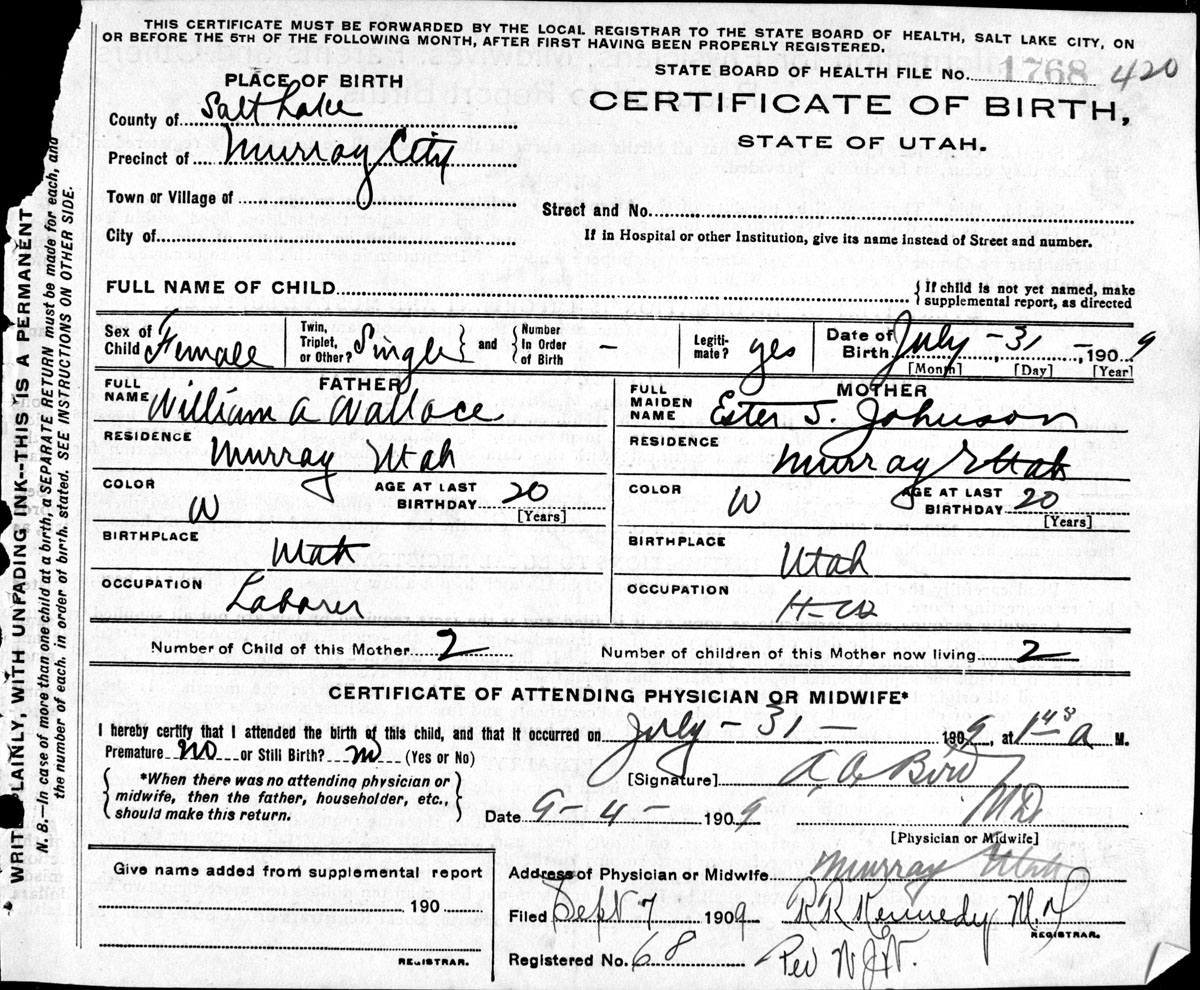 THIS CERTIFICATE MUST BE FORWARDED BY THE LOCAL REGISTRAR TO THE STATE BOARD OF HEALTH, SALT LAKE CITY, ON
OR BEFORE THE 5TH OF THE FOLLOWING MONTH, AFTER FIRST HAVING BEEN PROPERLY REGISTERED.
STATE BOARD OF HEALTH FILE No. 1768 420
PLACE OF BIRTH
CERTIFICATE OF BIRTH,
STATE OF UTAH.
County of Salt Lake
Precinct of Murray City
Town or Village of
Street and No.
City of
If in Hospital or other Institution, give its name instead of Street and number.
FULL NAME OF CHILD
{ If child is not yet named, make
supplemental report, as directed
Sex of Child Female
Twin, Triplet, or Other? Single } and { Number In Order of Birth –
Legiti-mate? yes
Date of Birth July - 31 - 1909
[Month] [Day] [Year]
FATHER
FULL NAME William A Wallace
RESIDENCE Murray Utah
COLOR W AGE AT LAST BIRTHDAY 20 [Years]
BIRTHPLACE Utah
OCCUPATION Laborer
MOTHER
FULL MAIDEN NAME Ester J. Johnson
RESIDENCE Murray Utah
COLOR W AGE AT LAST BIRTHDAY 20 [Years]
BIRTHPLACE Utah
OCCUPATION
Number of Child of this Mother 2 Number of children of this Mother now living 2
CERTIFICATE OF ATTENDING PHYSICIAN OR MIDWIFE*
I hereby certify that I attended the birth of this child, and that it occurred on July - 31 - 1909, at 1 48 a M.
Premature No or Still Birth? (Yes or No)
{ *When there was no attending physician or
midwife, then the father, householder, etc.,
should make this return. }
[Signature] A A Bird
MD
Date 9 - 4 - 1909
[Physician or Midwife]
Give name added from supplemental report
Address of Physician or Midwife Murray Utah
190
Filed Sept 7 1909 R K Kennedy M.D
REGISTRAR.
REGISTRAR.
Registered No. 68
WRITE PLAINLY, WITH UNFADING INK--THIS IS A PERMANENT
N. B.--In case of more than one child at a birth, a SEPARATE RETURN must be made for each, and
the number of each, in order of birth, stated. SEE INSTRUCTIONS ON OTHER SIDE.